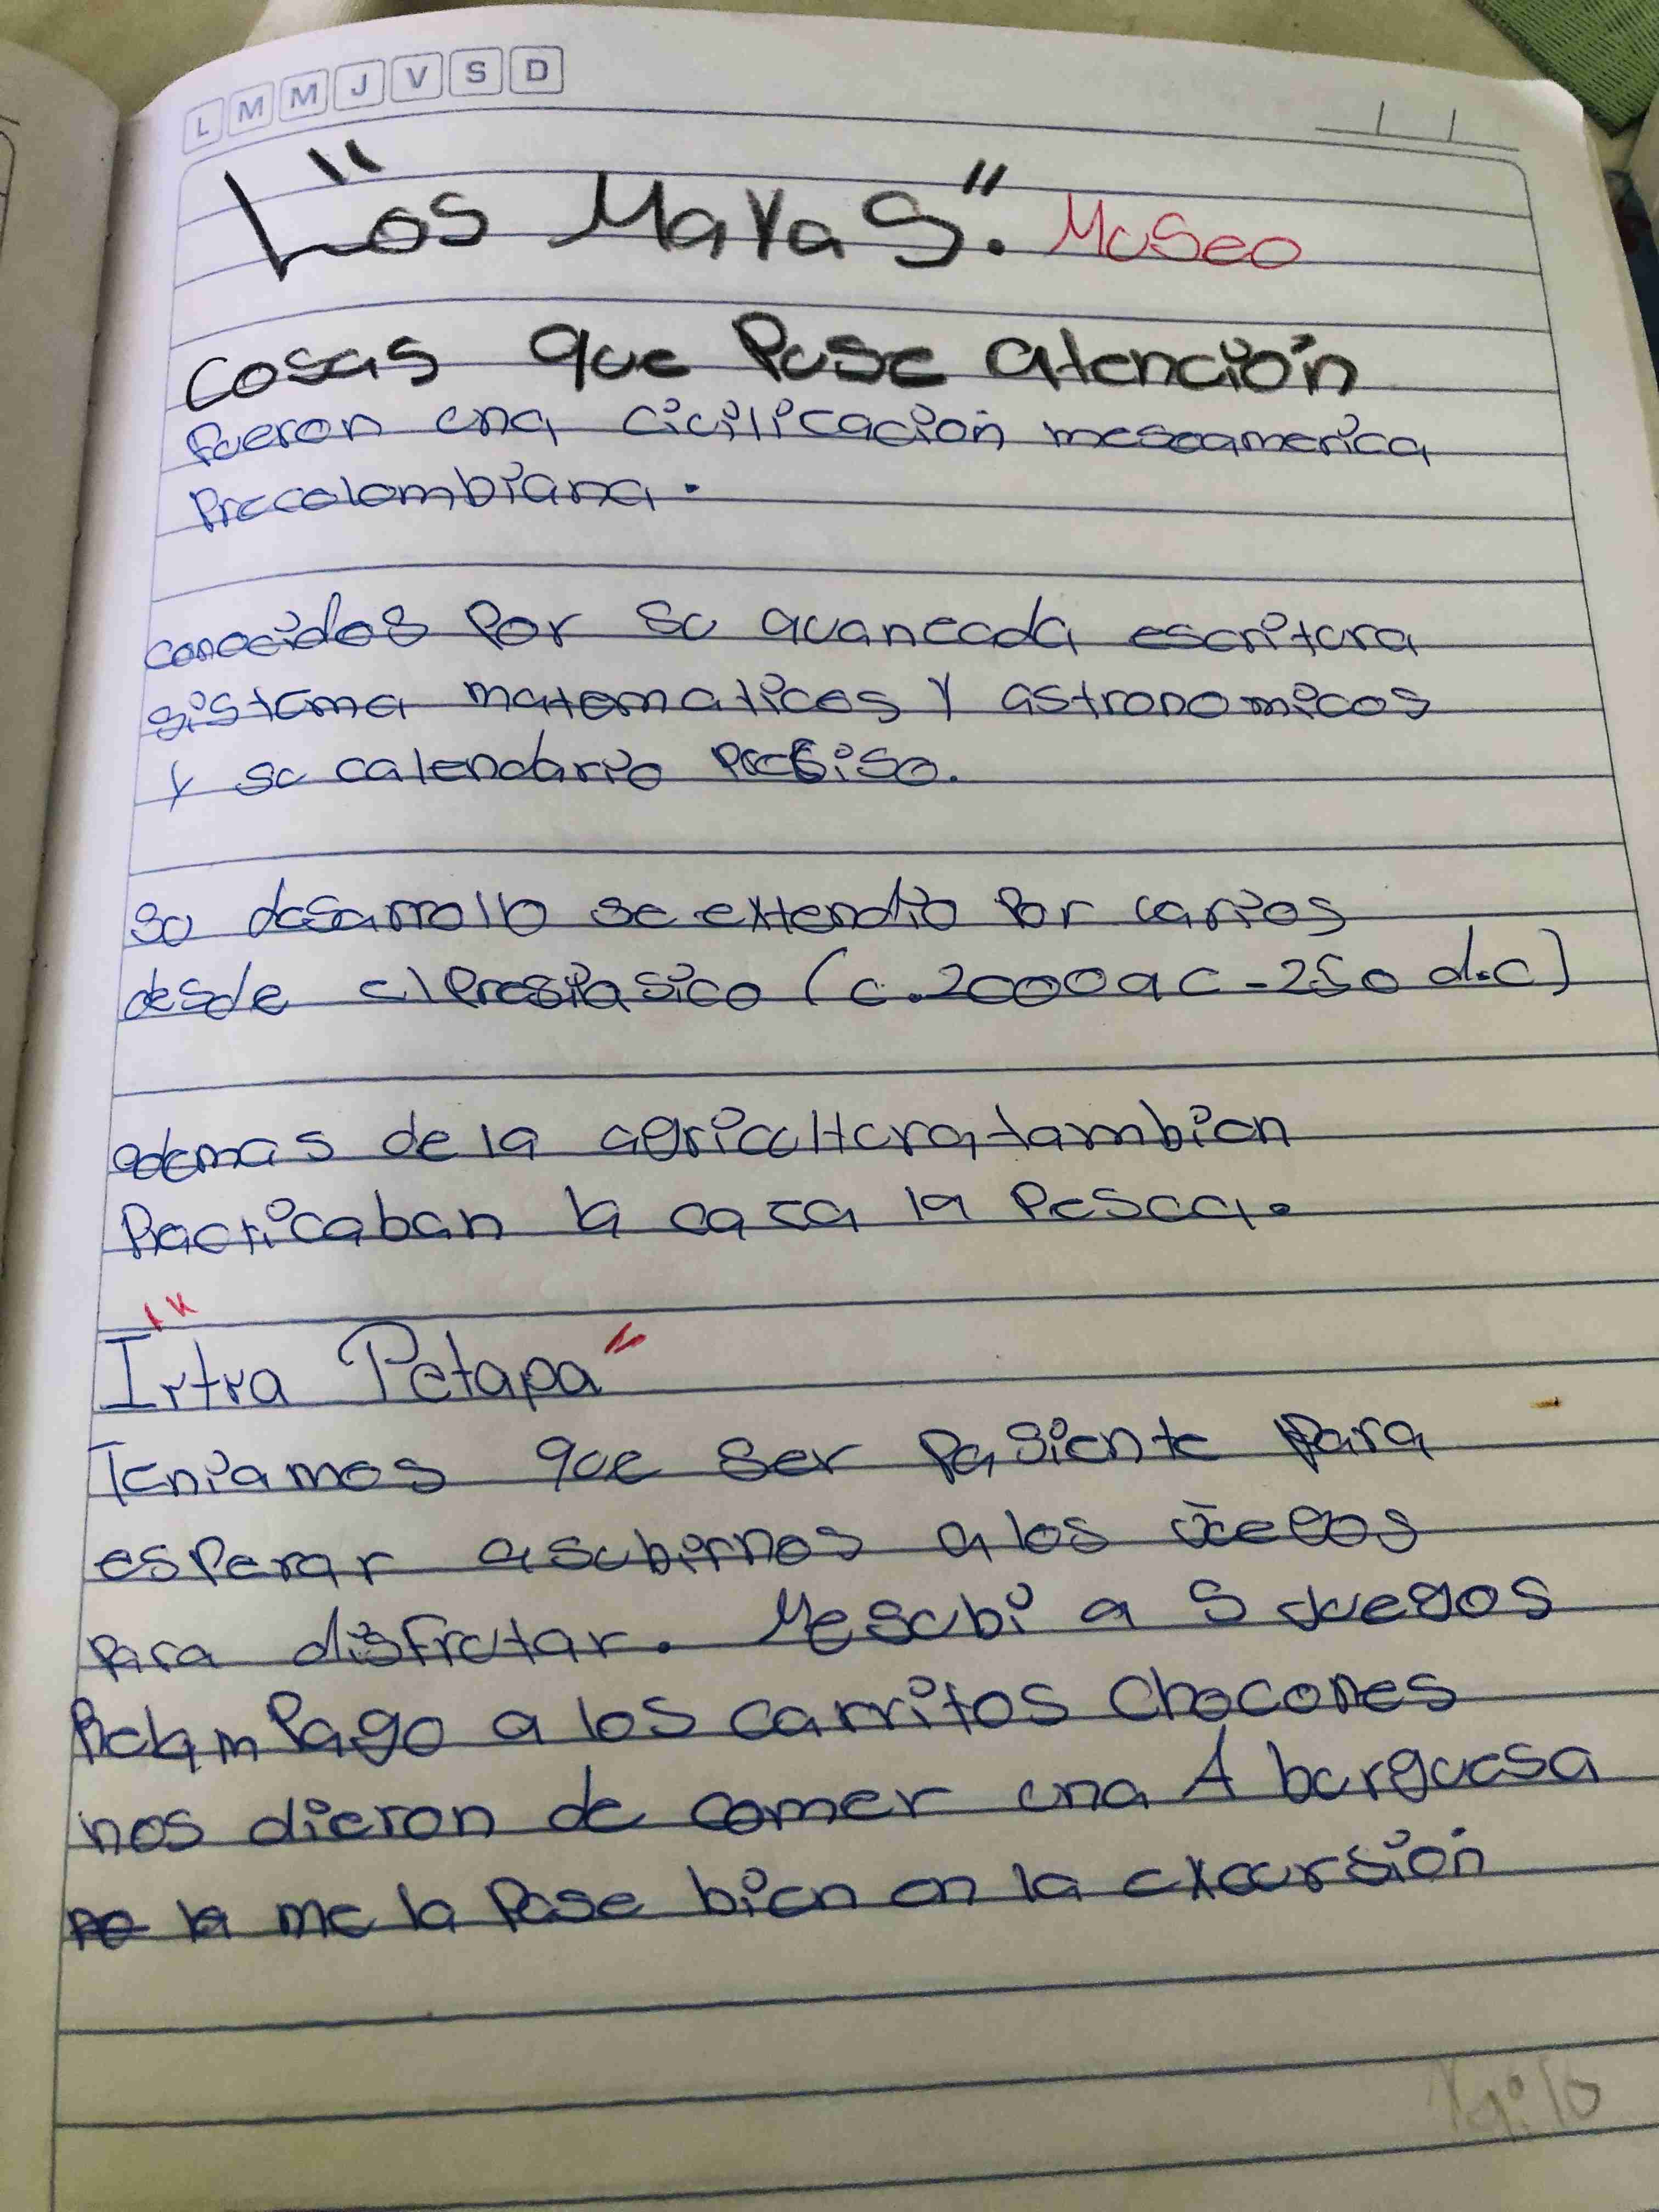 L M M J V S D
"Los Mayas". Museo
Cosas que Puse atención
fueron una civilicación mesoamerica
Precolombiana.
conocidos por su avancada escritura
sistema matematicos y astronomicos
y su calendario presiso.
su desarrollo se extendio por varios
desde el Presiasico (c.2000 a c - 250 d.c)
ademas de la agricultura tambien
Practicaban la caza la Pesca.
"Irtra Petapa"
Teniamos que ser pasiente para
esperar a subirnos a los
para disfrutar. Me subi a 5 Juegos
Relam Pago a los carritos chocones
nos dieron de comer una A burguesa
la me la pase bien en la excursión